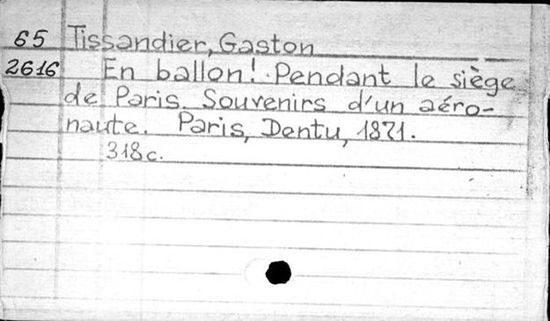 65 Tissandier, Gaston
2616 En ballon! Pendant le siège
de Paris. Souvenirs d'un aéro-
naute. Paris, Dentu, 1871.
318 c.